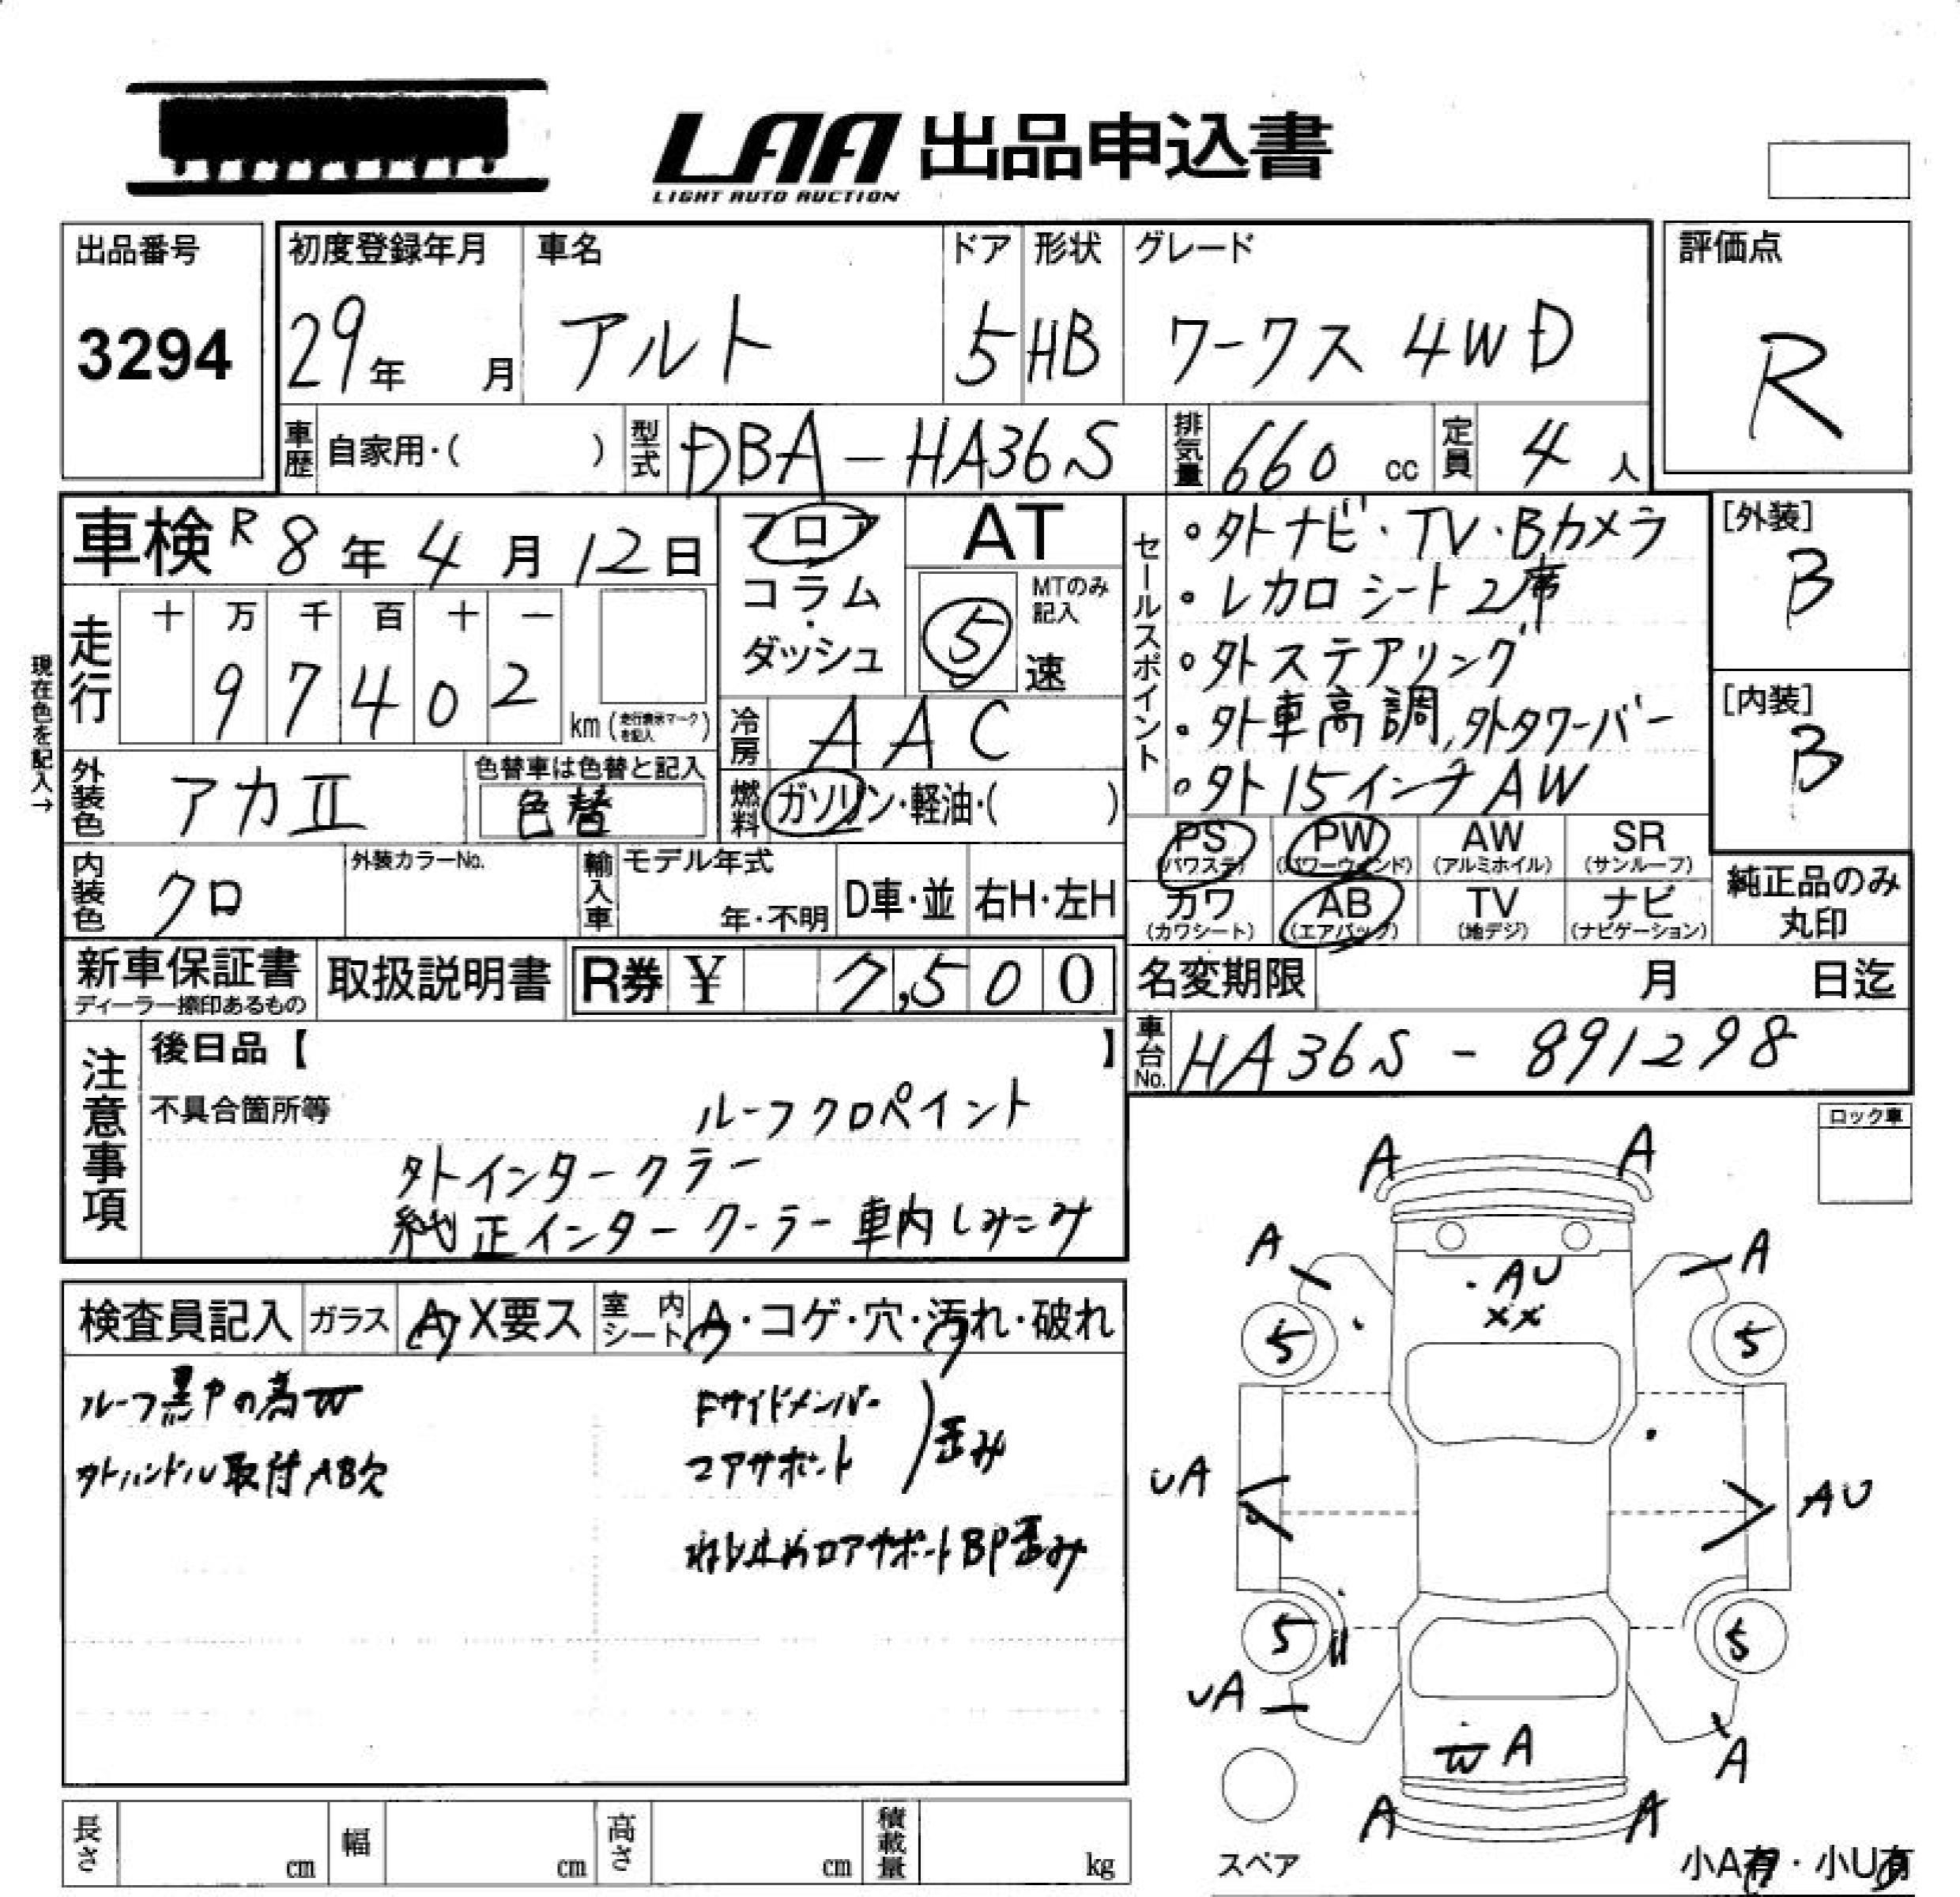 LAA 出品申込書
LIGHT AUTO AUCTION
出品番号
3294
初度登録年月
29年 月
車名
アルト
ドア
5
形状
HB
グレード
ワークス 4WD
評価点
R
車歴 自家用・( )
型式 DBA-HA36S
排気量 660 cc
定員 4 人
車検 R 8 年 4 月 12 日
フロア
コラム
・
ダッシュ
AT
MTのみ記入
5 速
セールスポイント
・外ナビ・TV・Bカメラ
・レカロシート2席
・外ステアリング
・外車高調,外タワーバー
・外15インチAW
[外装]
B
[内装]
B
現在色を記入→
走行
十 万 千 百 十 一
9 7 4 0 2
km (走行表示マークを記入)
冷房 AAC
外装色 アカⅡ
色替車は色替と記入
色替
燃料 ガソリン・軽油・( )
PS (パワステ)
PW (パワーウィンド)
AW (アルミホイル)
SR (サンルーフ)
カワ (カワシート)
AB (エアバッグ)
TV (地デジ)
ナビ (ナビゲーション)
純正品のみ
丸印
内装色 クロ
外装カラーNo.
輸入車
モデル年式
年・不明
D車・並
右H・左H
新車保証書
ディーラー捺印あるもの
取扱説明書
R券 ¥ 7,500
名変期限 月 日迄
車台No. HA36S - 891298
注意事項
後日品【 】
不具合箇所等
ルーフクロペイント
外インタークラー
純正インタークーラー車内しみこみ
ロック車
検査員記入
ガラス A・X要ス
室内シート A・コゲ・穴・汚れ・破れ
ルーフ黒
外ハンドル取付AB欠
Fサイドメンバー
コアサポート
歪み
ロアサポートBP歪み
A A
A A
AU
XX
5 5
UA AU
5 5
UA
W A
A
A A
スペア
小A有・小U有
長さ cm
幅 cm
高さ cm
積載量 kg